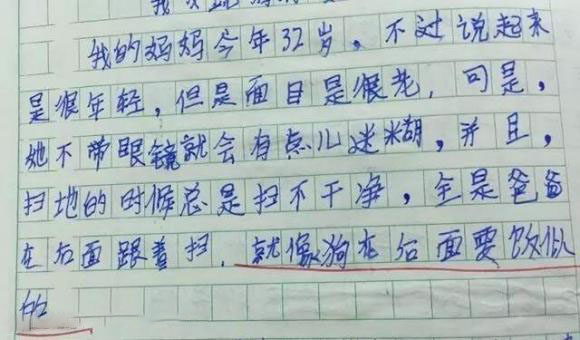 我的妈妈今年32岁，不过说起来
是很年轻，但是面目是很老，可是，
她不带眼镜就会有点儿迷糊，并且，
扫地的时候总是扫不干净，全是爸爸
在后面跟着扫，就像狗在后面要饭似
的